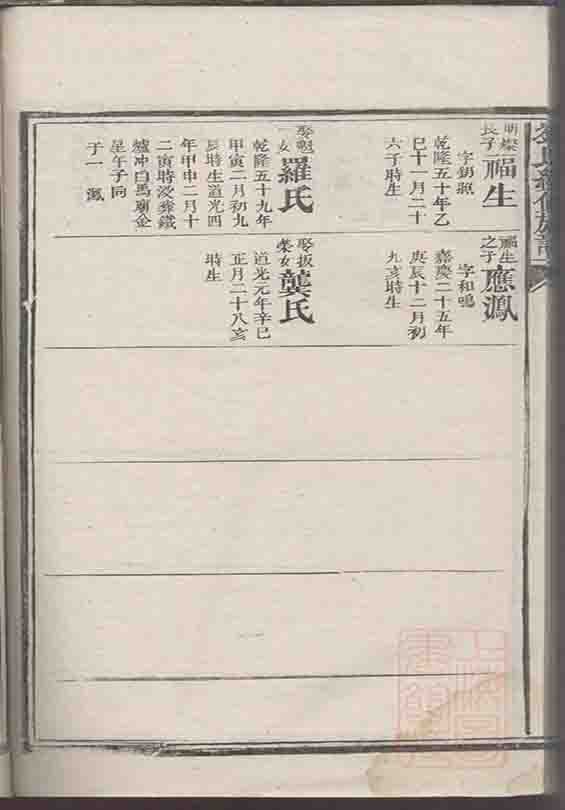 明燦
長子
福生
字鈅照
乾隆五十年乙
巳十一月二十
六子時生
娶
女
羅氏
乾隆五十九年
甲寅二月初九
辰時生道光四
年甲申二月十
二寅時没葬鐵
爐冲白馬廟金
星午子向
子一 鳳
福生
之子
應鳳
字和鳴
嘉慶二十五年
庚辰十二月初
九亥時生
娶扳
榮女
龔氏
道光元年辛巳
正月二十八亥
時生
氏續修族譜